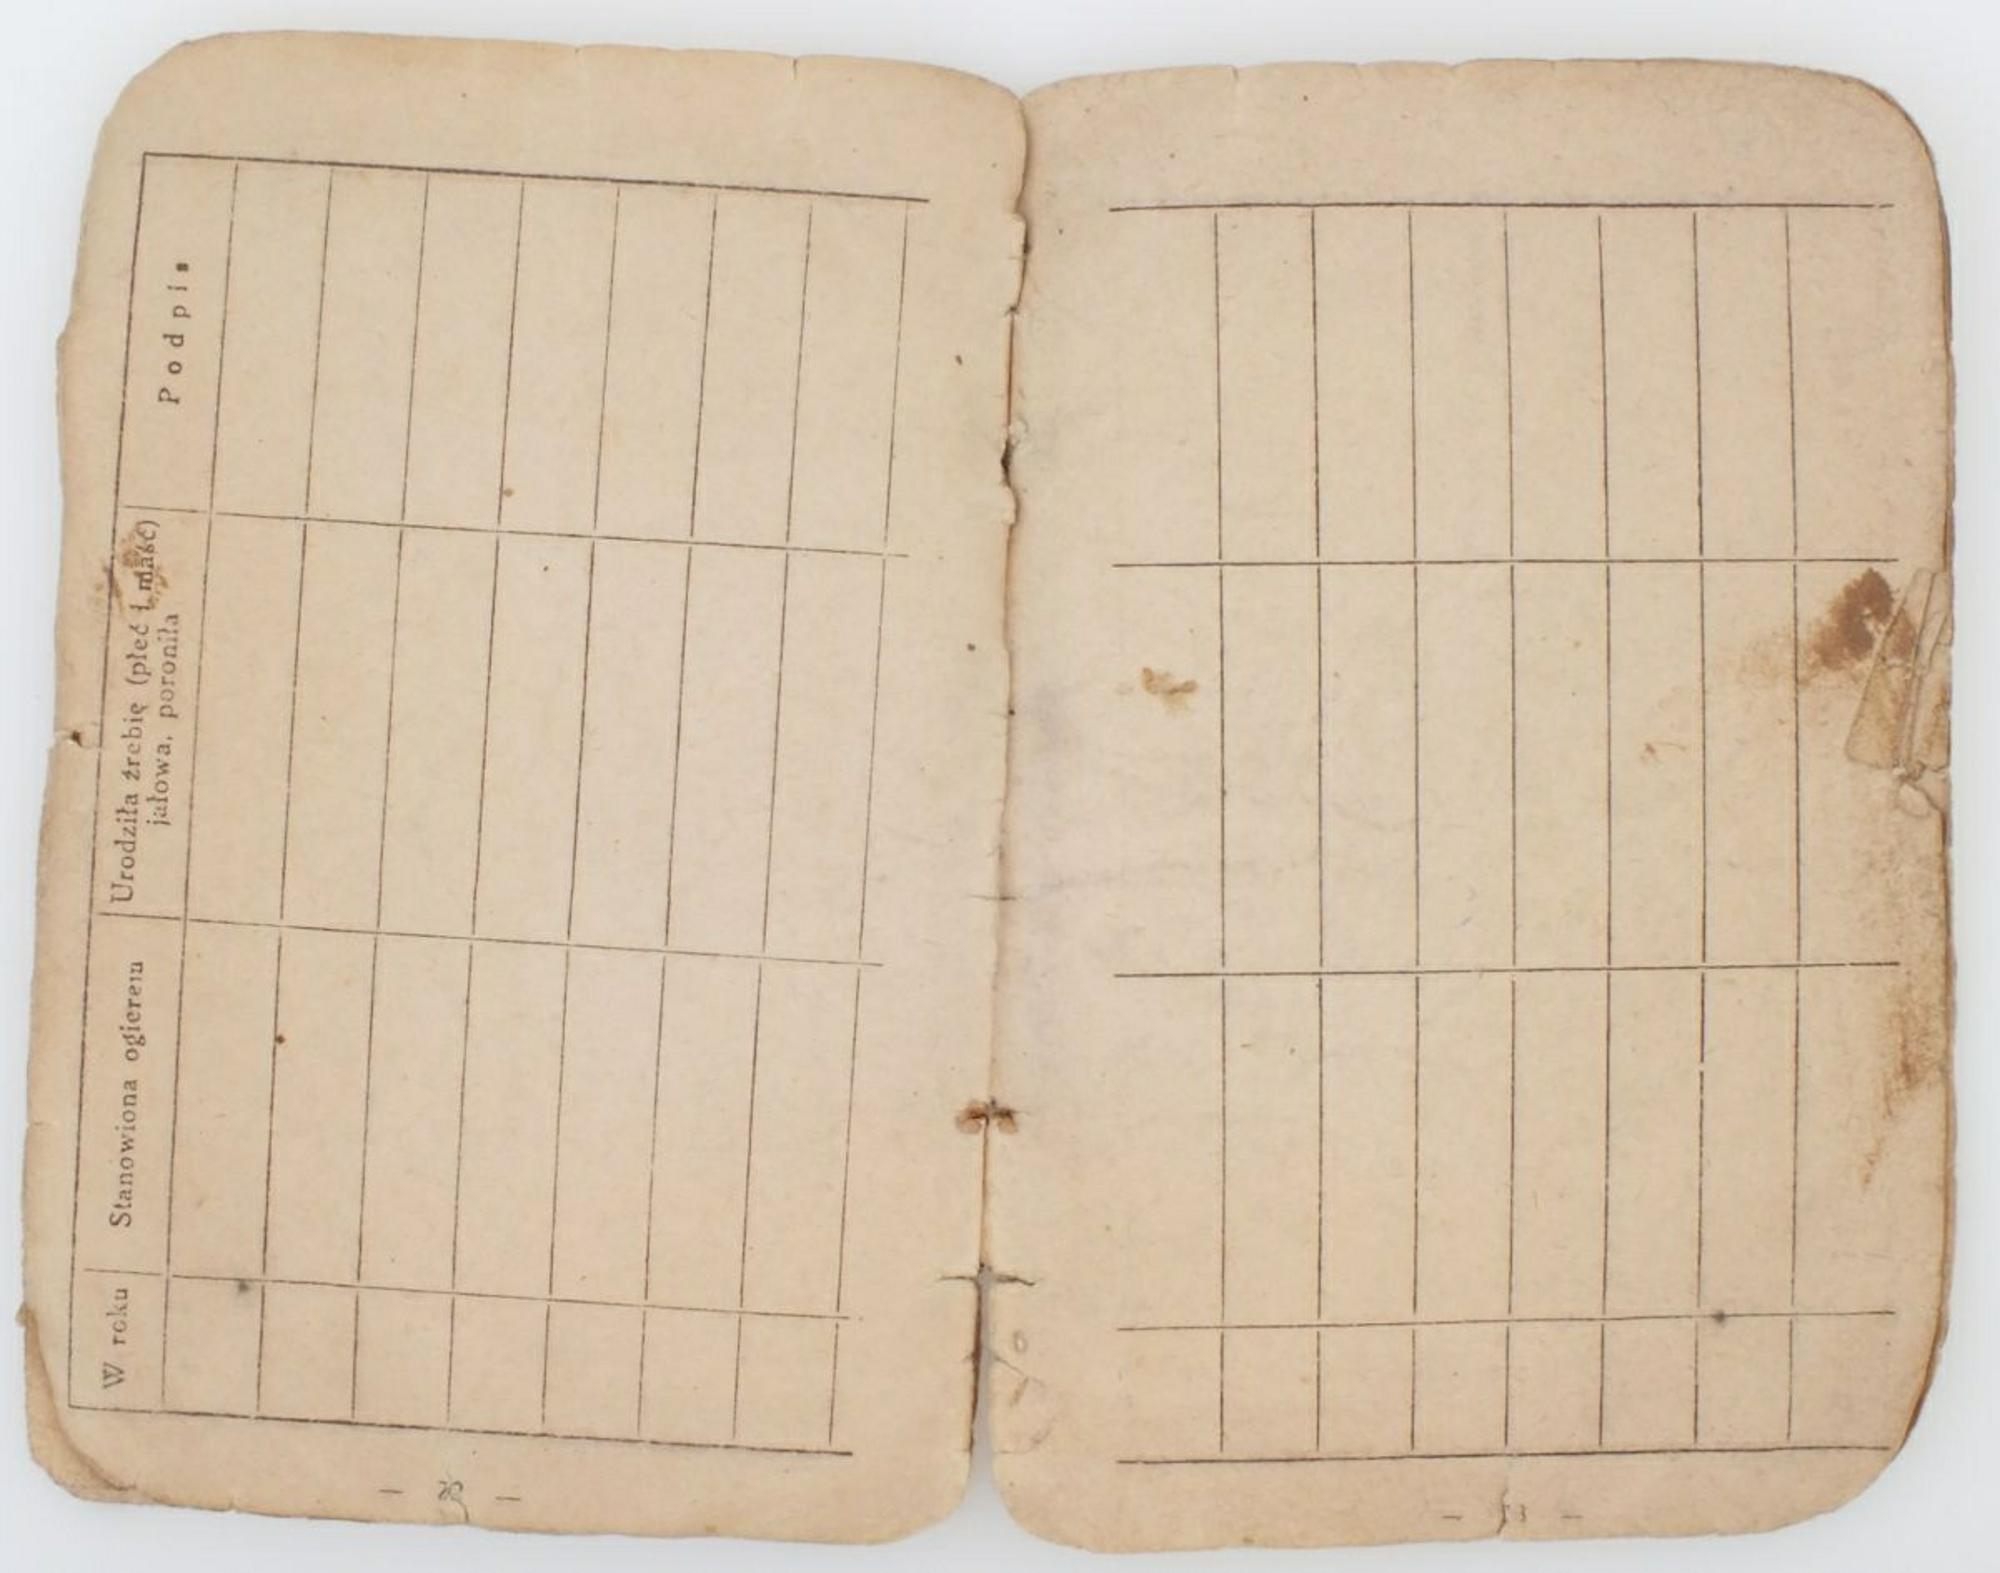 W roku
Stanowiona ogierem
Urodziła źrebię (płeć i maść)
jałowa, poroniła
Podpis